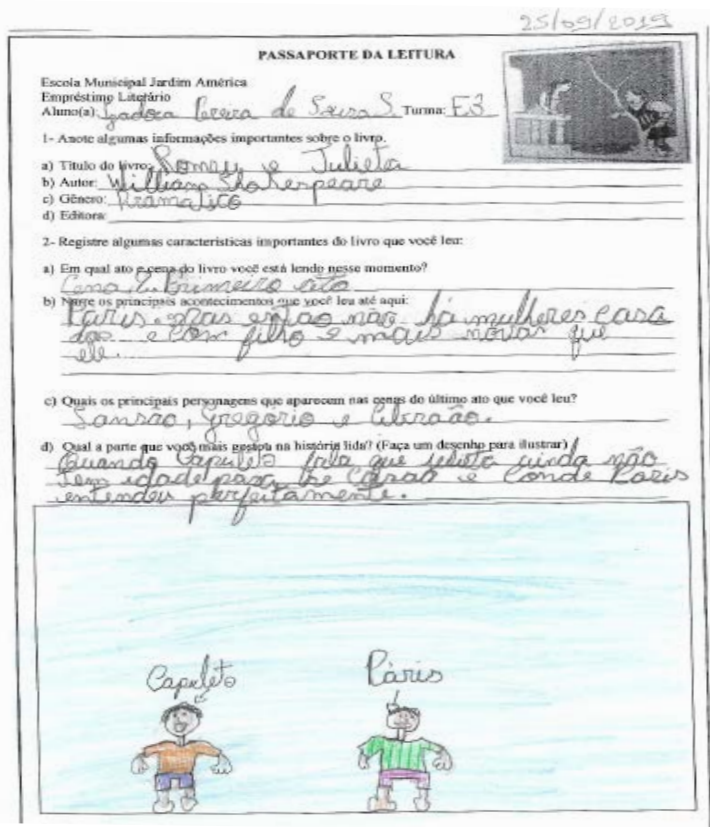 25/09/2019
PASSAPORTE DA LEITURA
Escola Municipal Jardim América
Empréstimo Literário
Aluno(a): Isadora Pereira de Souza S. Turma: E3
1- Anote algumas informações importantes sobre o livro.
a) Título do livro: Romeu e Julieta
b) Autor: William Shakespeare
c) Gênero: Dramatico
d) Editora:
2- Registre algumas características importantes do livro que você leu:
a) Em qual ato e cena do livro você está lendo nesse momento?
Cena 2, Primeiro ato
b) Narre os principais acontecimentos que você leu até aqui:
Páris, mas então não há mulheres casa
das e com filho e mais novas que
ele...
c) Quais os principais personagens que aparecem nas cenas do último ato que você leu?
Sansão, Gregório e Abraão.
d) Qual a parte que você mais gostou na história lida? (Faça um desenho para ilustrar)
Quando Capuleto fala que Julieta ainda não
tem idade para se casar e Conde Páris
entendeu perfeitamente.
Capuleto
Páris